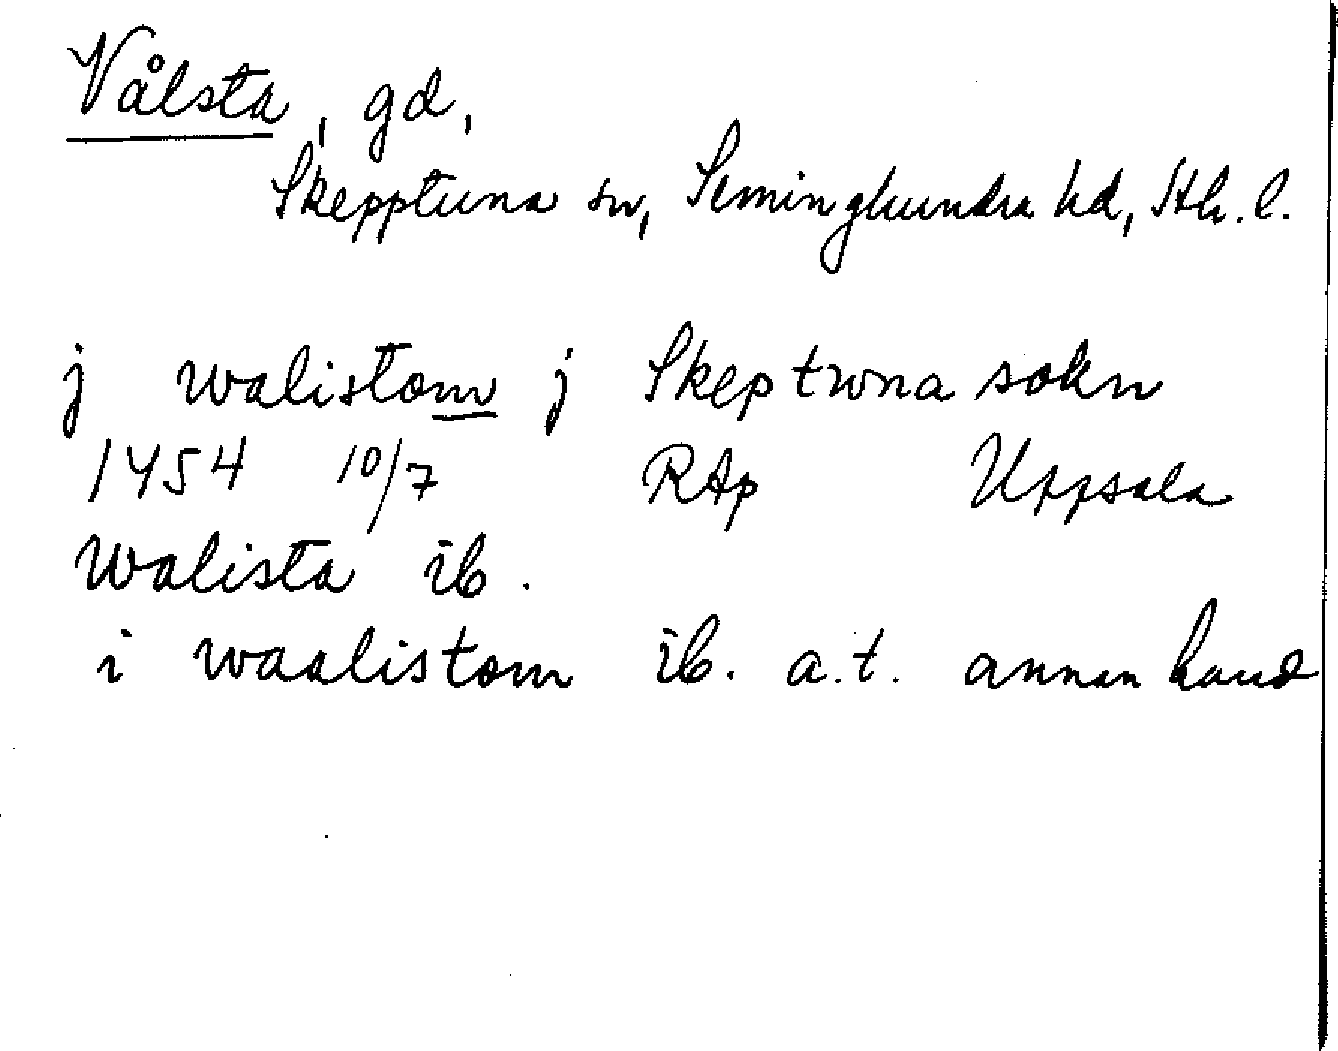 Vålsta, gd,
Skepptuna sn, Seminghundra hd, Sth. l.
j walistom j Skeptwna sokn
1454 10/7 RAp Uppsala
Walista ib.
i waalistom ib. a.t. annan hand